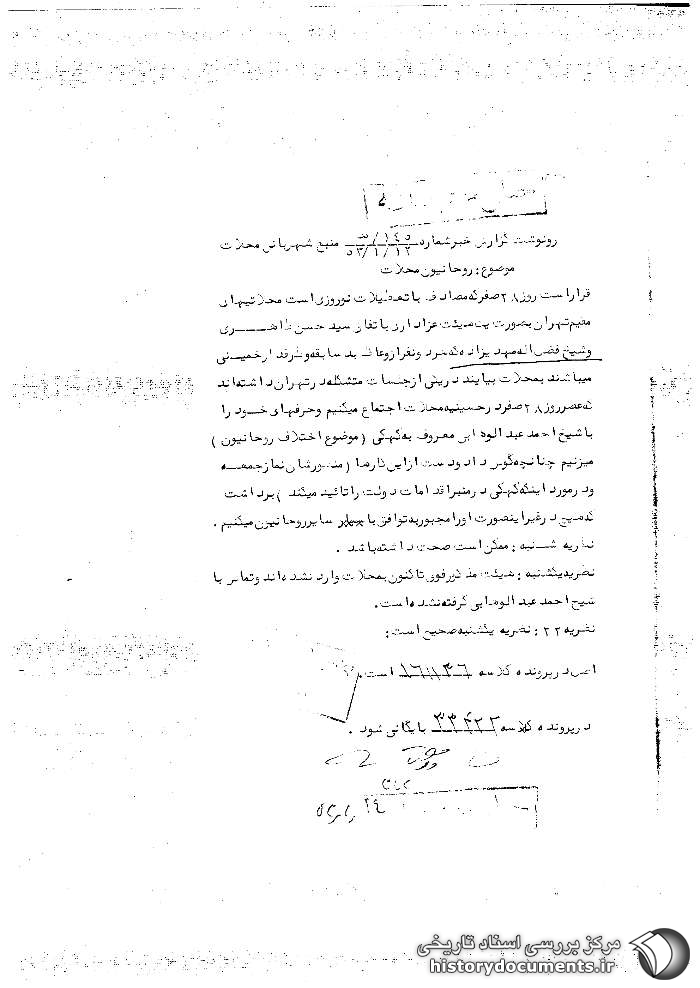 رونوشت گزارش خبر شماره ۱۴۵/ منبع شهربانی محلات
۵۳/۱/۱۲
موضوع : روحانیون محلات
قرار است روز ۲۸ صفر که مصادف با تعطیلات نوروزی است محلاتیهای
مقیم تهران بصورت یک هیئت عزاداری با تفاق سید حسن طاهری
و شیخ فضل اله مهدیزاده که خرد و نفر از وعاظ بد سابقه و طرفدار خمینی
میباشند بمحلات بیایند در یکی از جلسات متشکله در تهران داشته اند
که عصر روز ۲۸ صفر در حسینیه محلات اجتماع میکنیم و حرفهای خود را
با شیخ احمد عبدالوهابی معروف به کهکی ( موضوع اختلاف روحانیون )
میزنیم چنانچه گوش داد و دست از این کارها ( منظورشان نماز جمعه
و در مورد اینکه کهکی در منبر اقدامات دولت را تائید میکند ) برداشت
که هیچ در غیر اینصورت او را مجبور به توافق با سایر روحانیون میکنیم .
نظریه شنبه : ممکن است صحت داشته باشد .
نظریه یکشنبه : هیئت مذکور فوق تاکنون بمحلات وارد نشده اند و تماس با
شیخ احمد عبدالوهابی گرفته نشده است .
نظریه ۲۲ : نظریه یکشنبه صحیح است :
اصل در پرونده کلاسه است .
در پرونده کلاسه ۳۳۴۲۲ بایگانی شود .
مرکز بررسی اسناد تاریخی
historydocuments.ir